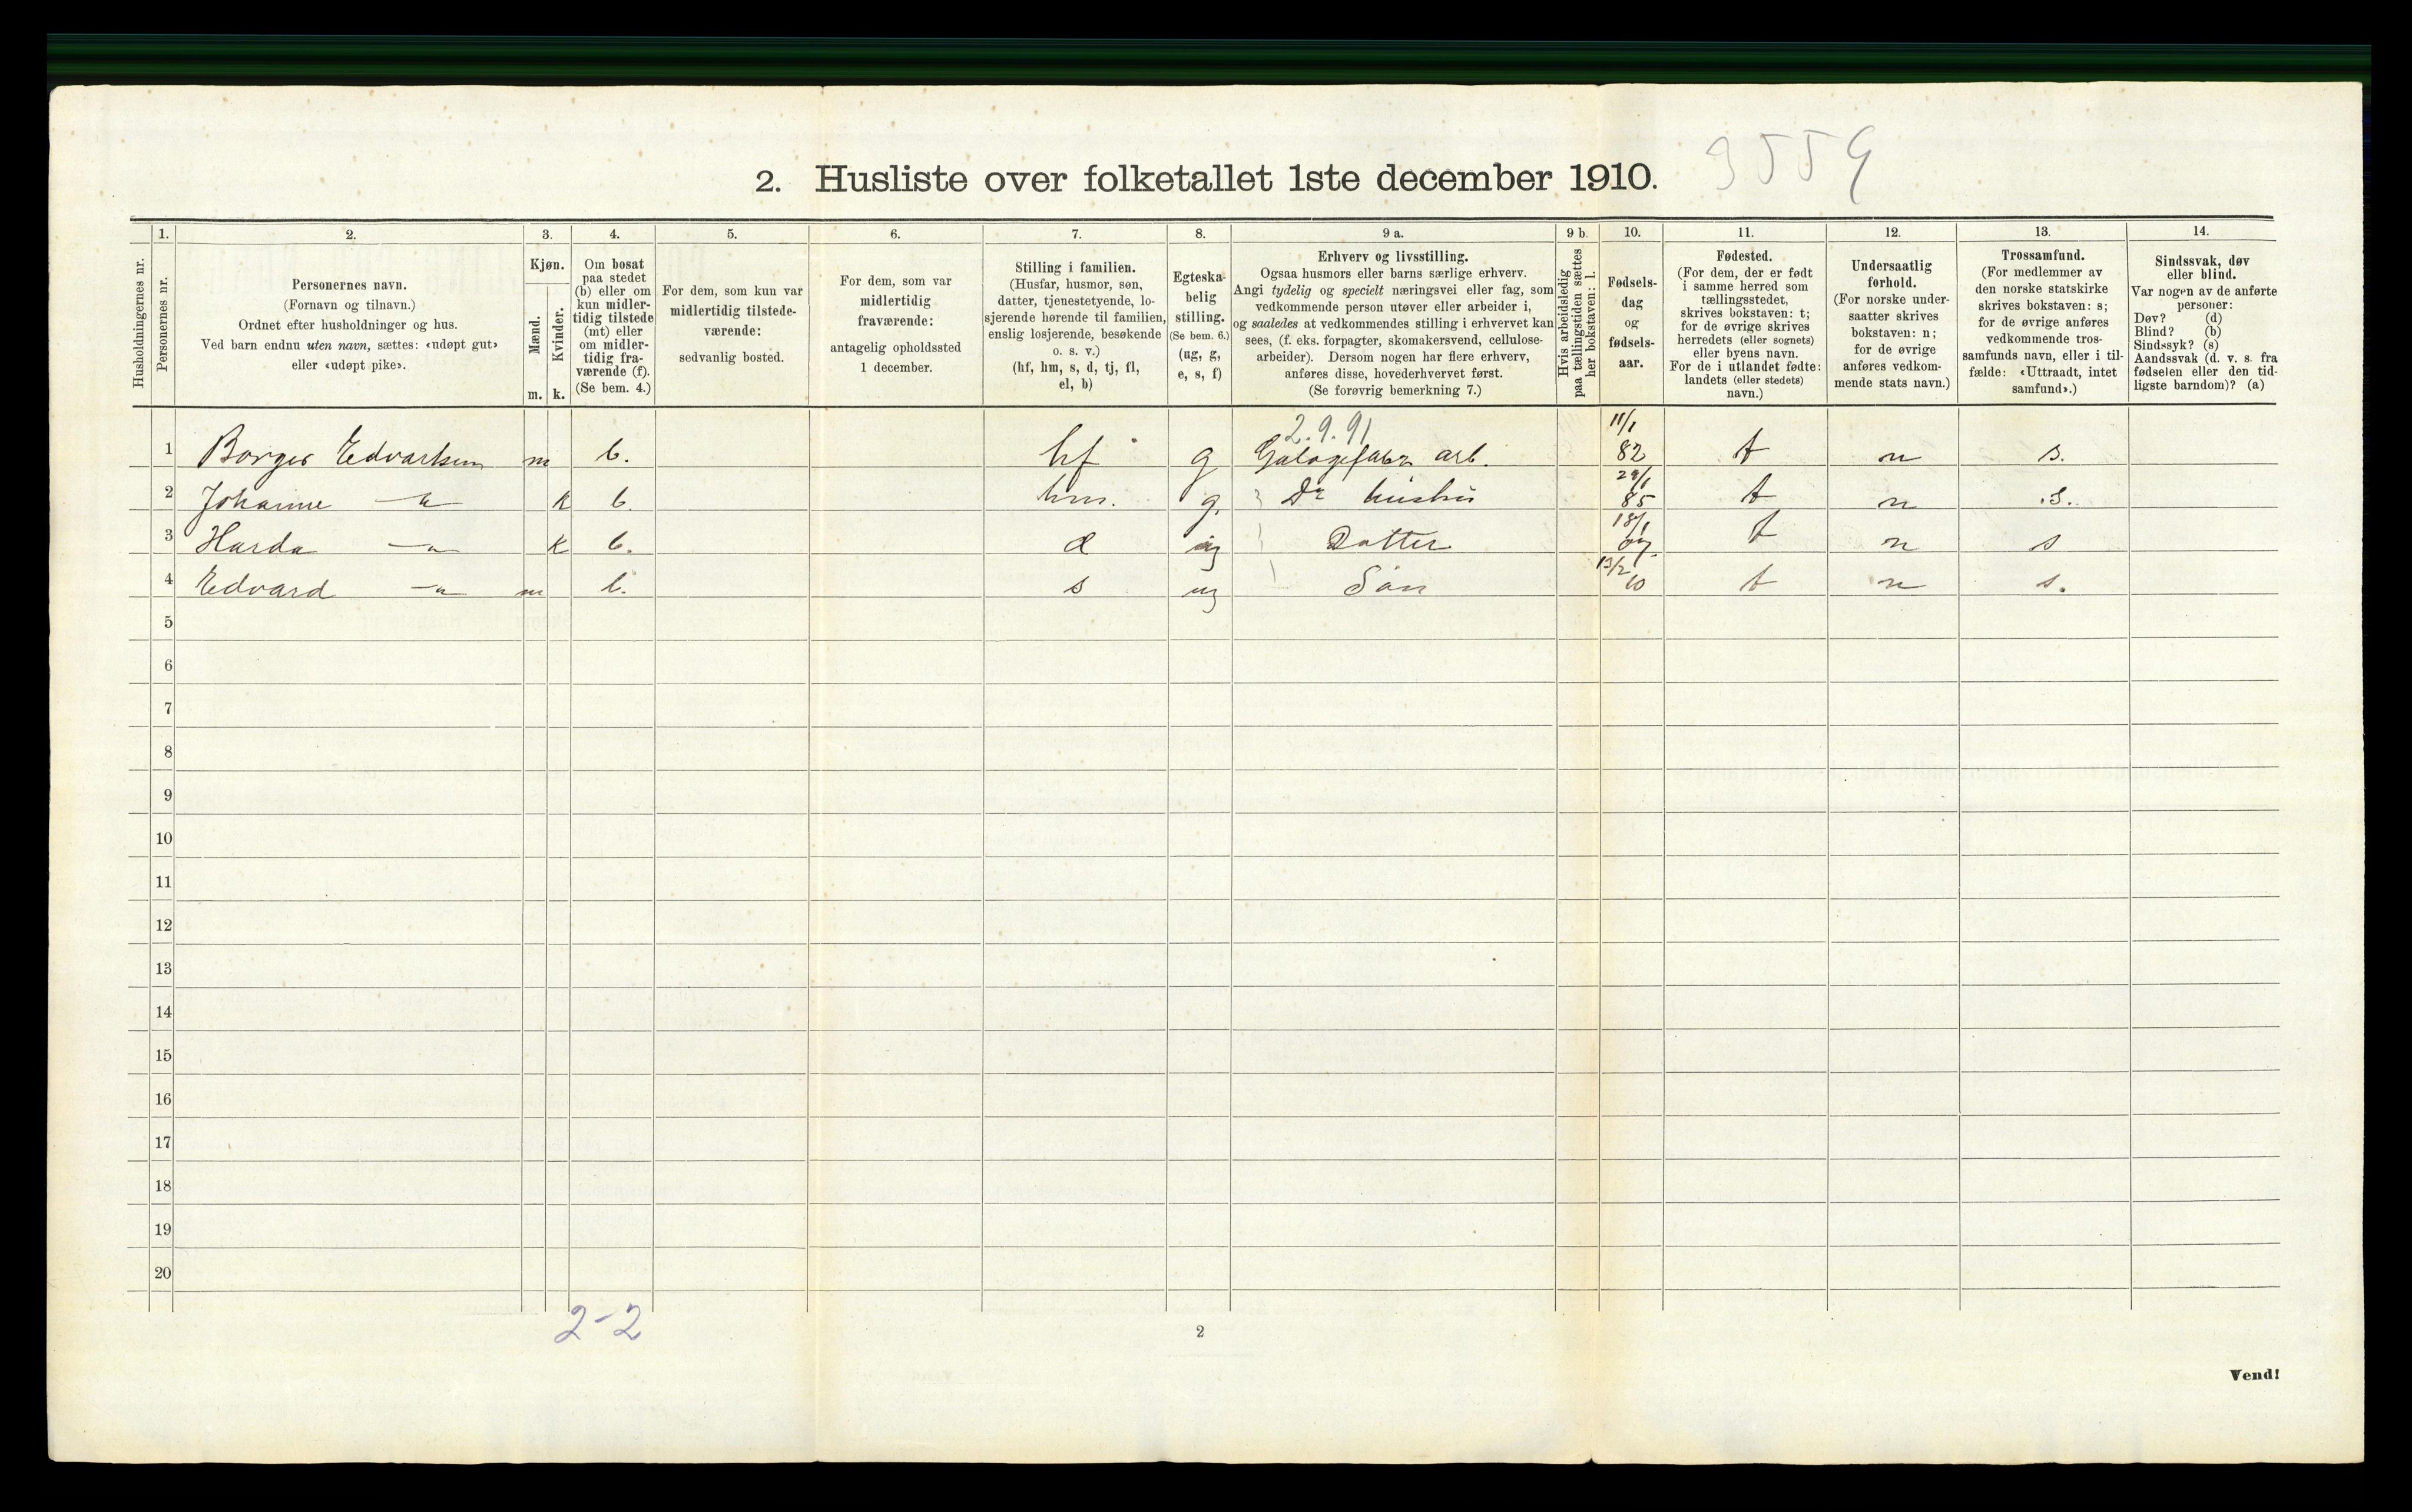 2. Husliste over folketallet 1ste december 1910. 3559
1. 2. 3. 4. 5. 6. 7. 8. 9 a. 9 b. 10. 11. 12. 13. 14.
Husholdningernes nr.
Personernes nr.
Personernes navn.
(Fornavn og tilnavn.)
Ordnet efter husholdninger og hus.
Ved barn endnu uten navn, sættes: «udøpt gut»
eller «udøpt pike».
Kjøn.
Mænd.
Kvinder.
m. k.
Om bosat
paa stedet
(b) eller om
kun midler-
tidig tilstede
(mt) eller
om midler-
tidig fra-
værende (f).
(Se bem. 4.)
For dem, som kun var
midlertidig tilstede-
værende:
sedvanlig bosted.
For dem, som var
midlertidig
fraværende:
antagelig opholdssted
1 december.
Stilling i familien.
(Husfar, husmor, søn,
datter, tjenestetyende, lo-
sjerende hørende til familien,
enslig losjerende, besøkende
o. s. v.)
(hf, hm, s, d, tj, fl,
el, b)
Egteska-
belig
stilling.
(Se bem. 6.)
(ug, g,
e, s, f)
Erhverv og livsstilling.
Ogsaa husmors eller barns særlige erhverv.
Angi tydelig og specielt næringsvei eller fag, som
vedkommende person utøver eller arbeider i,
og saaledes at vedkommendes stilling i erhvervet kan
sees, (f. eks. forpagter, skomakersvend, cellulose-
arbeider). Dersom nogen har flere erhverv,
anføres disse, hovederhvervet først.
(Se forøvrig bemerkning 7.)
Hvis arbeidsledig
paa tællingstiden sættes
her bokstaven: l.
Fødsels-
dag
og
fødsels-
aar.
Fødested.
(For dem, der er født
i samme herred som
tællingsstedet,
skrives bokstaven: t;
for de øvrige skrives
herredets (eller sognets)
eller byens navn.
For de i utlandet fødte:
landets (eller stedets)
navn.)
Undersaatlig
forhold.
(For norske under-
saatter skrives
bokstaven: n;
for de øvrige
anføres vedkom-
mende stats navn.)
Trossamfund.
(For medlemmer av
den norske statskirke
skrives bokstaven: s;
for de øvrige anføres
vedkommende tros-
samfunds navn, eller i til-
fælde: «Uttraadt, intet
samfund».)
Sindssvak, døv
eller blind.
Var nogen av de anførte
personer:
Døv? (d)
Blind? (b)
Sindssyk? (s)
Aandssvak (d. v. s. fra
fødselen eller den tid-
ligste barndom)? (a)
2.9.91
1 Borger Edvartsen m b. hf g Galogefabr arb. 11/1 82 t n s.
2 Johanne —"— k b. hm. g. Do hustru 29/1 85 t n s.
3 Harda —"— k b. d ug Datter 18/1 07 t n s
4 Edvard —"— m b. s ug Søn 13/2 10 t n s.
5
6
7
8
9
10
11
12
13
14
15
16
17
18
19
20
2-2
2
Vend!